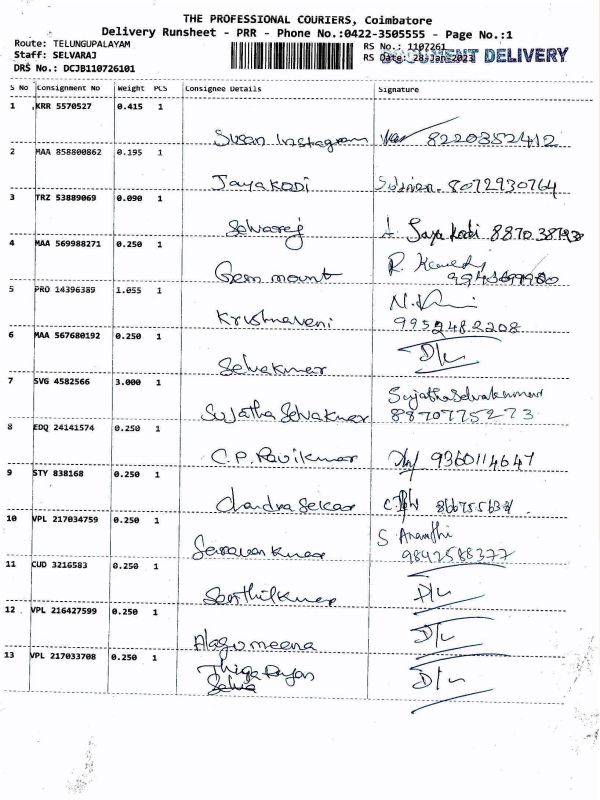 THE PROFESSIONAL COURIERS, Coimbatore
Delivery Runsheet - PRR - Phone No.:0422-3505555 - Page No.:1
Route: TELUNGUPALAYAM RS No.: 1107261
Staff: SELVARAJ RS Date: 28-Jan-2023 DOCUMENT DELIVERY
DRS No.: DCJB110726101
S No Consignment No Weight PCS Consignee Details Signature
1 KRR 5570527 0.415 1
Susan Instagram 8220352412
2 MAA 858800862 0.195 1
Jayakodi 8072930764
3 TRZ 53889069 0.090 1
Selvaraj Jaya Kodi
4 MAA 569988271 0.250 1
Gem mount R. Kennedy
5 PRO 14396389 1.055 1
Krishnaveni 9952482208
6 MAA 567680192 0.250 1
Selvakumar D/L
7 SVG 4582566 3.000 1
Sujatha Selvakumar Sujatha Selvakumar
8870775273
8 EDQ 24141574 0.250 1
C.P. Ravikumar 9360114647
9 STY 838168 0.250 1
Chandra Sekar
10 VPL 217034759 0.250 1
Saravan Kumar S
9842588377
11 CUD 3216583 0.250 1
Senthilkumar D/L
12 VPL 216427599 0.250 1
Alagumeena D/L
13 VPL 217033708 0.250 1
D/L
Selva